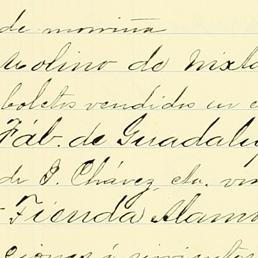 de morriña
Molino de Nixta
boletos vendidos en e
Fáb. de Guadalu
de P. Chávez, cta. va
Tienda Alam